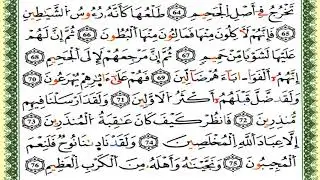 تَخْرُجُ فِىٓ أَصْلِ ٱلْجَحِيمِ ٦٤ طَلْعُهَا كَأَنَّهُۥ رُءُوسُ ٱلشَّيَٰطِينِ
٦٥ فَإِنَّهُمْ لَءَاكِلُونَ مِنْهَا فَمَالِـُٔونَ مِنْهَا ٱلْبُطُونَ ٦٦ ثُمَّ إِنَّ لَهُمْ
عَلَيْهَا لَشَوْبًا مِّنْ حَمِيمٍ ٦٧ ثُمَّ إِنَّ مَرْجِعَهُمْ لَإِلَى ٱلْجَحِيمِ ٦٨
إِنَّهُمْ أَلْفَوْا۟ ءَابَآءَهُمْ ضَآلِّينَ ٦٩ فَهُمْ عَلَىٰٓ ءَاثَٰرِهِمْ يُهْرَعُونَ ٧٠
وَلَقَدْ ضَلَّ قَبْلَهُمْ أَكْثَرُ ٱلْأَوَّلِينَ ٧١ وَلَقَدْ أَرْسَلْنَا فِيهِم
مُّنذِرِينَ ٧٢ فَٱنظُرْ كَيْفَ كَانَ عَٰقِبَةُ ٱلْمُنذَرِينَ ٧٣
إِلَّا عِبَادَ ٱللَّهِ ٱلْمُخْلَصِينَ ٧٤ وَلَقَدْ نَادَىٰنَا نُوحٌ فَلَنِعْمَ
ٱلْمُجِيبُونَ ٧٥ وَنَجَّيْنَٰهُ وَأَهْلَهُۥ مِنَ ٱلْكَرْبِ ٱلْعَظِيمِ ٧٦